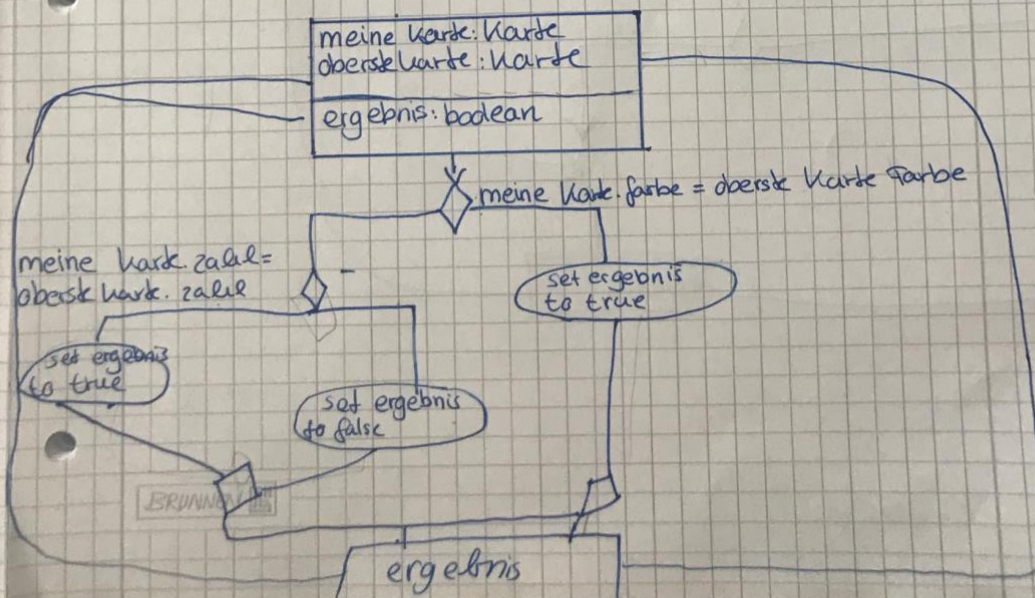 meine Karte: Karte
oberste Karte: Karte
ergebnis: boolean
meine Karte.farbe = oberste Karte Farbe
meine Karte.zahl=
oberste Karte.zahl
set ergebnis
to true
set ergebnis
to true
set ergebnis
to false
BRUNNEN
ergebnis